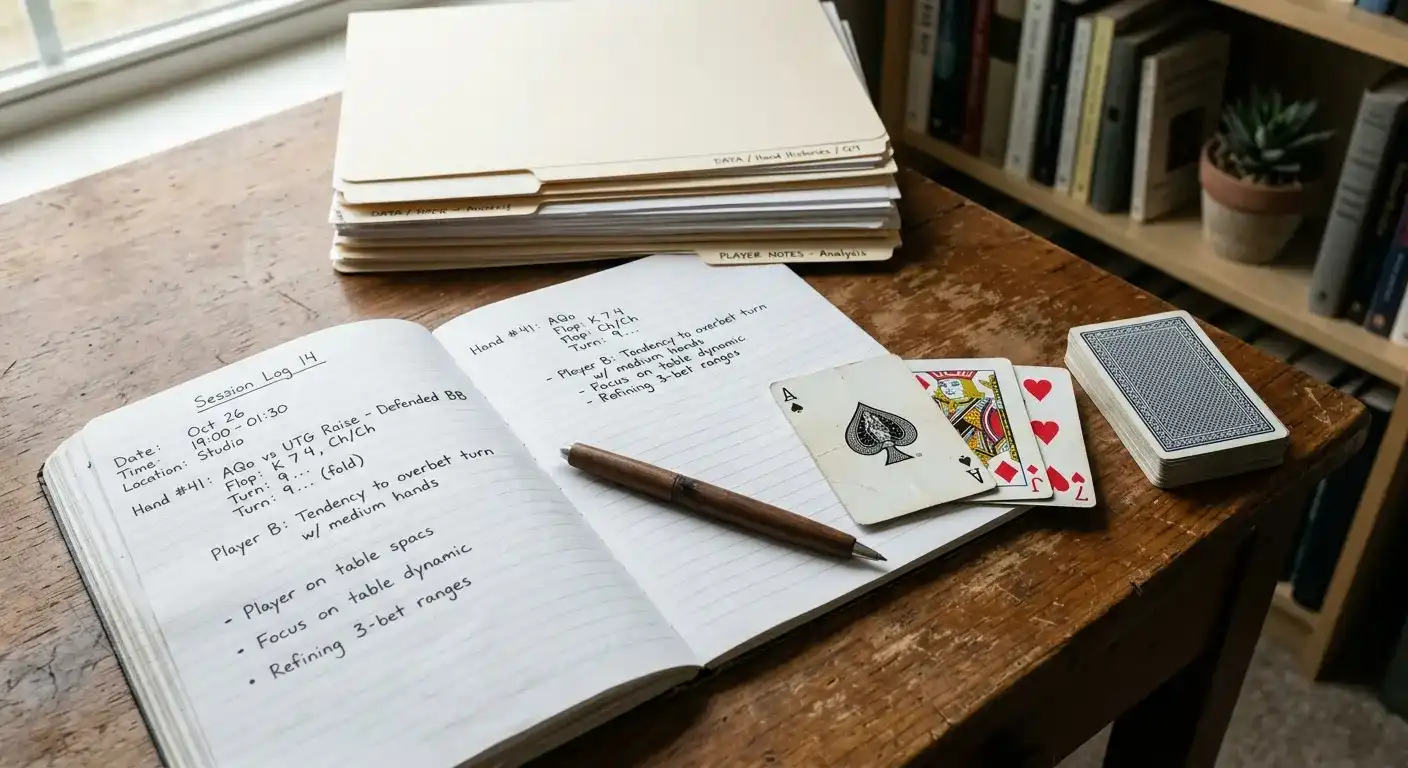 DATA / Hand Histories / Q4
DATA /
PLAYER NOTES - Analysis
Session Log 14
Date: Oct 26
Time: 19:00 - 01:30
Location: Studio
Hand #41: AQo vs UTG Raise - Defended BB
Flop: K 7 4, Ch/Ch
Turn: 9... (fold)
Player B: Tendency to overbet turn
w/ medium hands
- Player on table spacs
• Focus on table dynamic
• Refining 3-bet ranges
Hand #41: AQo
Flop: K 7 4
Flop: Ch/Ch
Turn: 9...
- Player B: Tendency to overbet turn
w/ medium hands
- Focus on table dynamic
- Refining 3-bet ranges
A
A
J
7